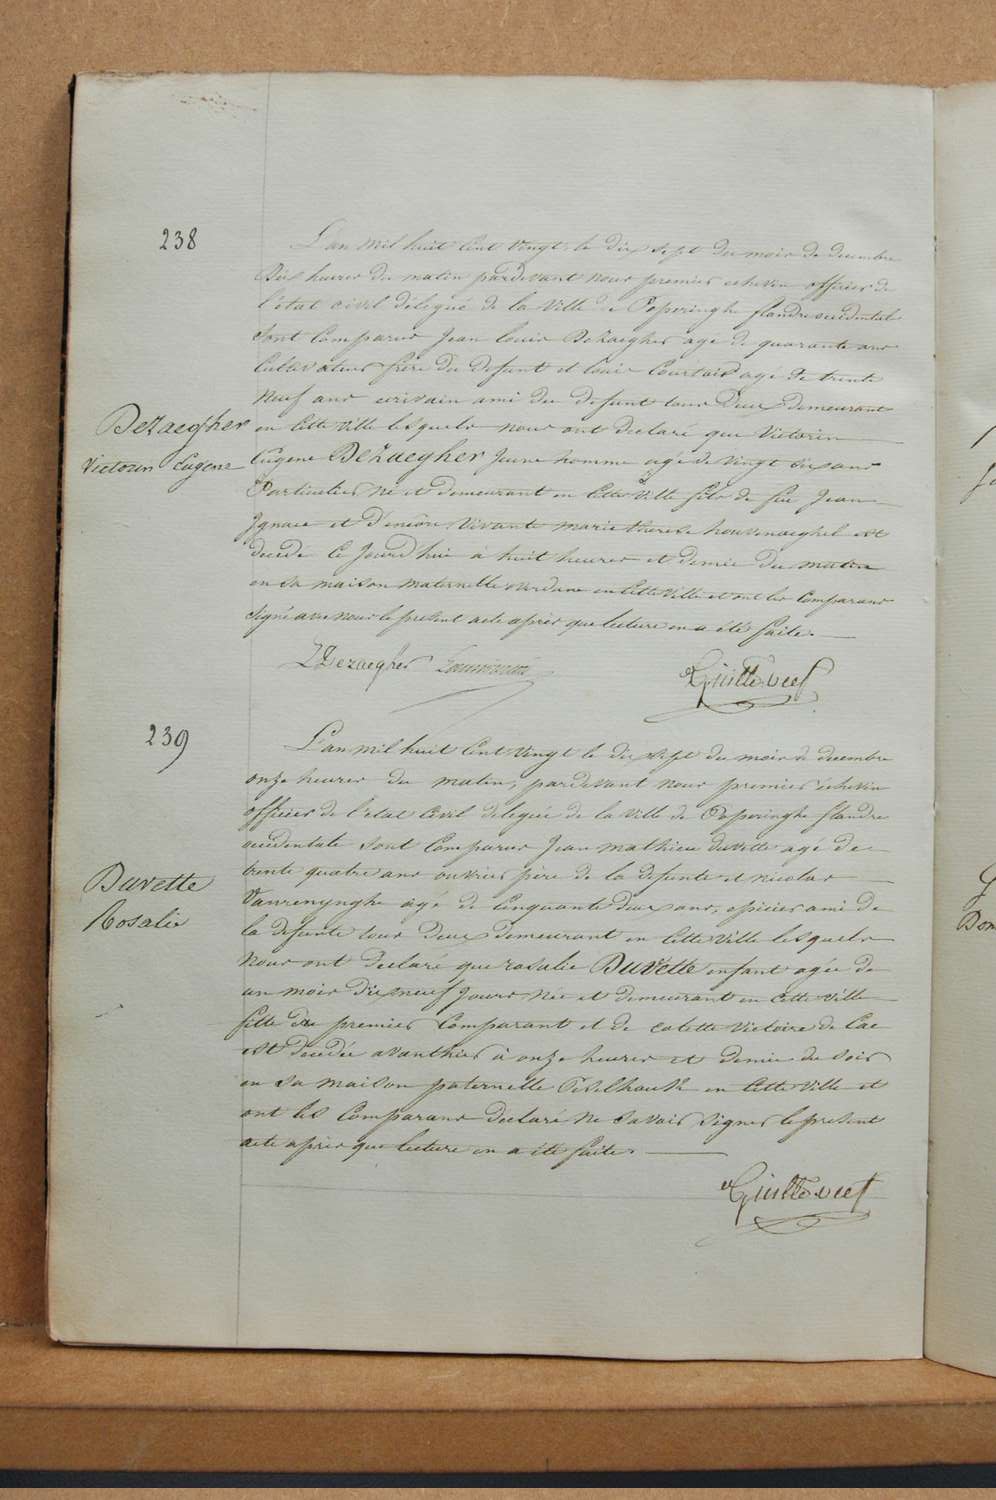 238
L'an mil huit cent vingt, le dix sept du mois de decembre
dix heures du matin pardevant nous premier echevin officier de
l'état civil délégué de la ville de Poperinghe flandre occidentale
sont comparus Jean Louis DeZaegher agé de quarante ans
cultivateur frère du defunt et Louis Courtois agé de trente
neuf ans ecrivain ami du defunt tous deux demeurant
DeZaegher
Victorin Eugene
en cette ville lesquels nous ont declaré que Victorin
Eugene DeZaegher jeune homme agé de vingt six ans
Particulier né et demeurant en cette ville fils de feu Jean
Ignace et d'encore vivante marie therese houvenaeghel est
decedé ce jourd'hui à huit heures et demie du matin
en sa maison maternelle en cette ville et ont les comparans
signé avec nous le present acte après que lecture en a été faite.
DeZaegher
239
L'an mil huit cent vingt le dix sept du mois de decembre
onze heures du matin, pardevant nous premier échevin
officier de l'état civil deleguée de la ville de Poperinghe flandre
occidentale sont comparus Jean mathieu duvette agé de
trente quatre ans ouvrier père de la defunte et nicolas
Vanrenynghe agé de cinquante deux ans, epicier ami de
Duvette
Rosalie
la defunte tous deux demeurant en cette ville lesquels
nous ont declaré que rosalie Duvette enfant agée de
un mois dix neuf jours née et demeurant en cette ville
fille du premier comparant et de colette victoire de Cae
est decedée avanthier à onze heures et demie du soir
en sa maison paternelle en cette ville et
ont les comparans declaré ne savoir signer le present
acte après que lecture en a été faite.